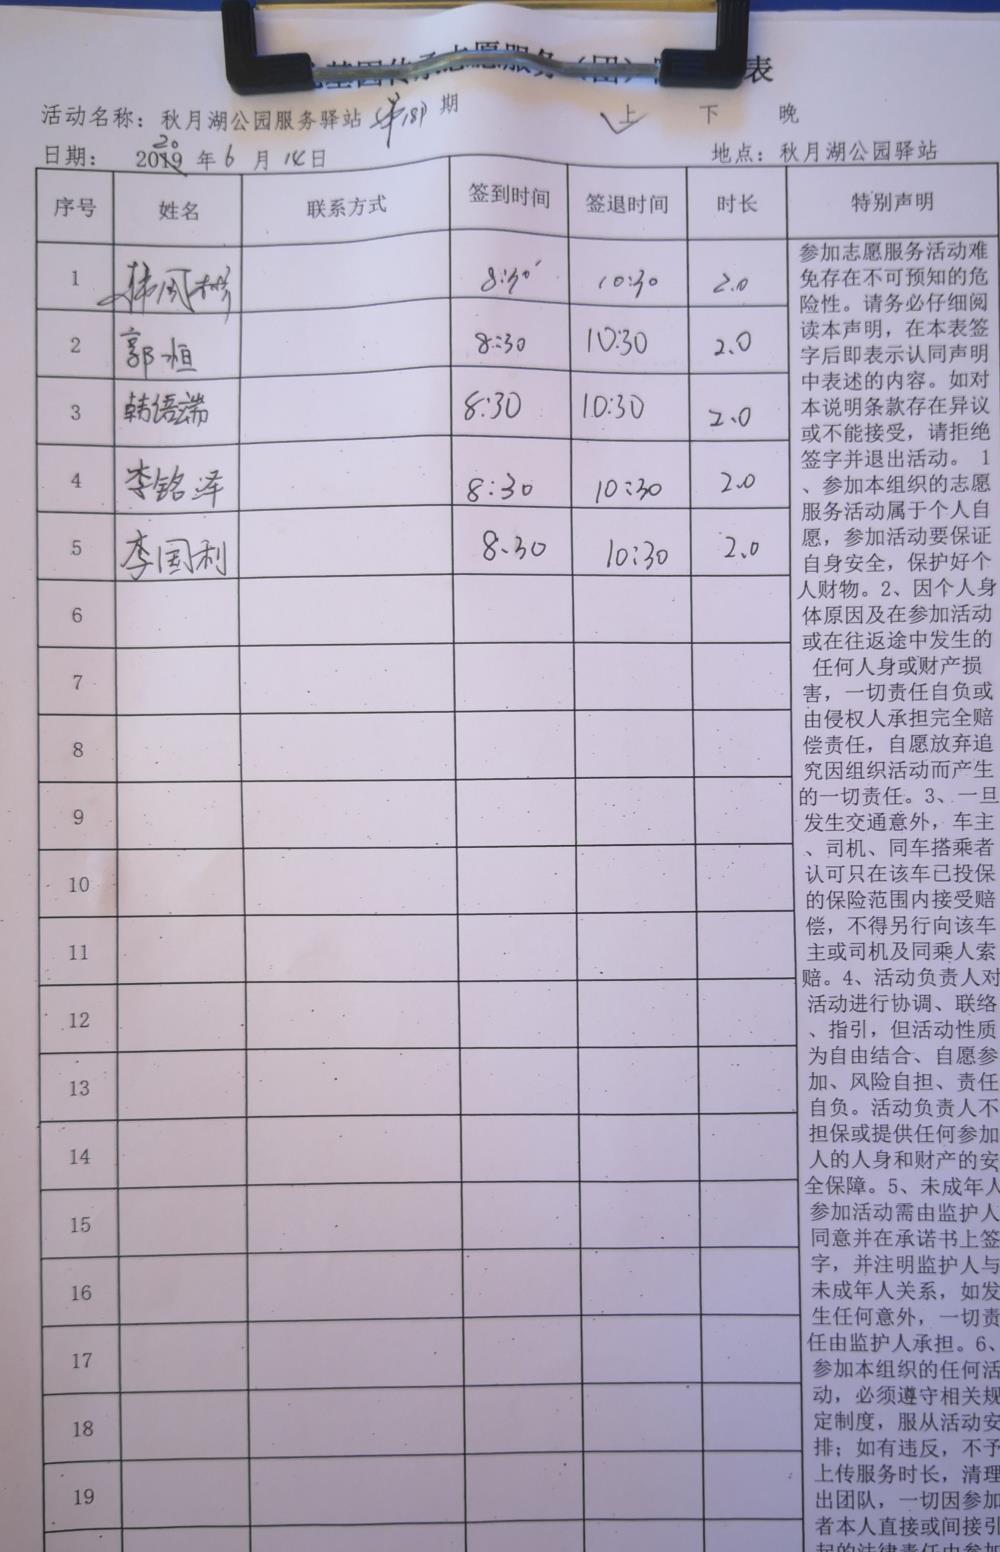 基因传承志愿服务（团） 表
活动名称：秋月湖公园服务驿站 第 期 上 下 晚
日期： 2019 20 年 6 月 14 日 地点：秋月湖公园驿站
序号 姓名 联系方式 签到时间 签退时间 时长 特别声明
1 8:30 10:30 2.0
2 郭恒 8:30 10:30 2.0
3 韩语端 8:30 10:30 2.0
4 李铭泽 8:30 10:30 2.0
5 李国利 8.30 10:30 2.0
6
7
8
9
10
11
12
13
14
15
16
17
18
19
参加志愿服务活动难
免存在不可预知的危
险性。请务必仔细阅
读本声明，在本表签
字后即表示认同声明
中表述的内容。如对
本说明条款存在异议
或不能接受，请拒绝
签字并退出活动。 1
、参加本组织的志愿
服务活动属于个人自
愿，参加活动要保证
自身安全，保护好个
人财物。2、因个人身
体原因及在参加活动
或在往返途中发生的
任何人身或财产损
害，一切责任自负或
由侵权人承担完全赔
偿责任，自愿放弃追
究因组织活动而产生
的一切责任。3、一旦
发生交通意外，车主
、司机、同车搭乘者
认可只在该车已投保
的保险范围内接受赔
偿，不得另行向该车
主或司机及同乘人索
赔。4、活动负责人对
活动进行协调、联络
、指引，但活动性质
为自由结合、自愿参
加、风险自担、责任
自负。活动负责人不
担保或提供任何参加
人的人身和财产的安
全保障。5、未成年人
参加活动需由监护人
同意并在承诺书上签
字，并注明监护人与
未成年人关系，如发
生任何意外，一切责
任由监护人承担。6、
参加本组织的任何活
动，必须遵守相关规
定制度，服从活动安
排；如有违反，不予
上传服务时长，清理
出团队，一切因参加
者本人直接或间接引
起的法律责任由参加